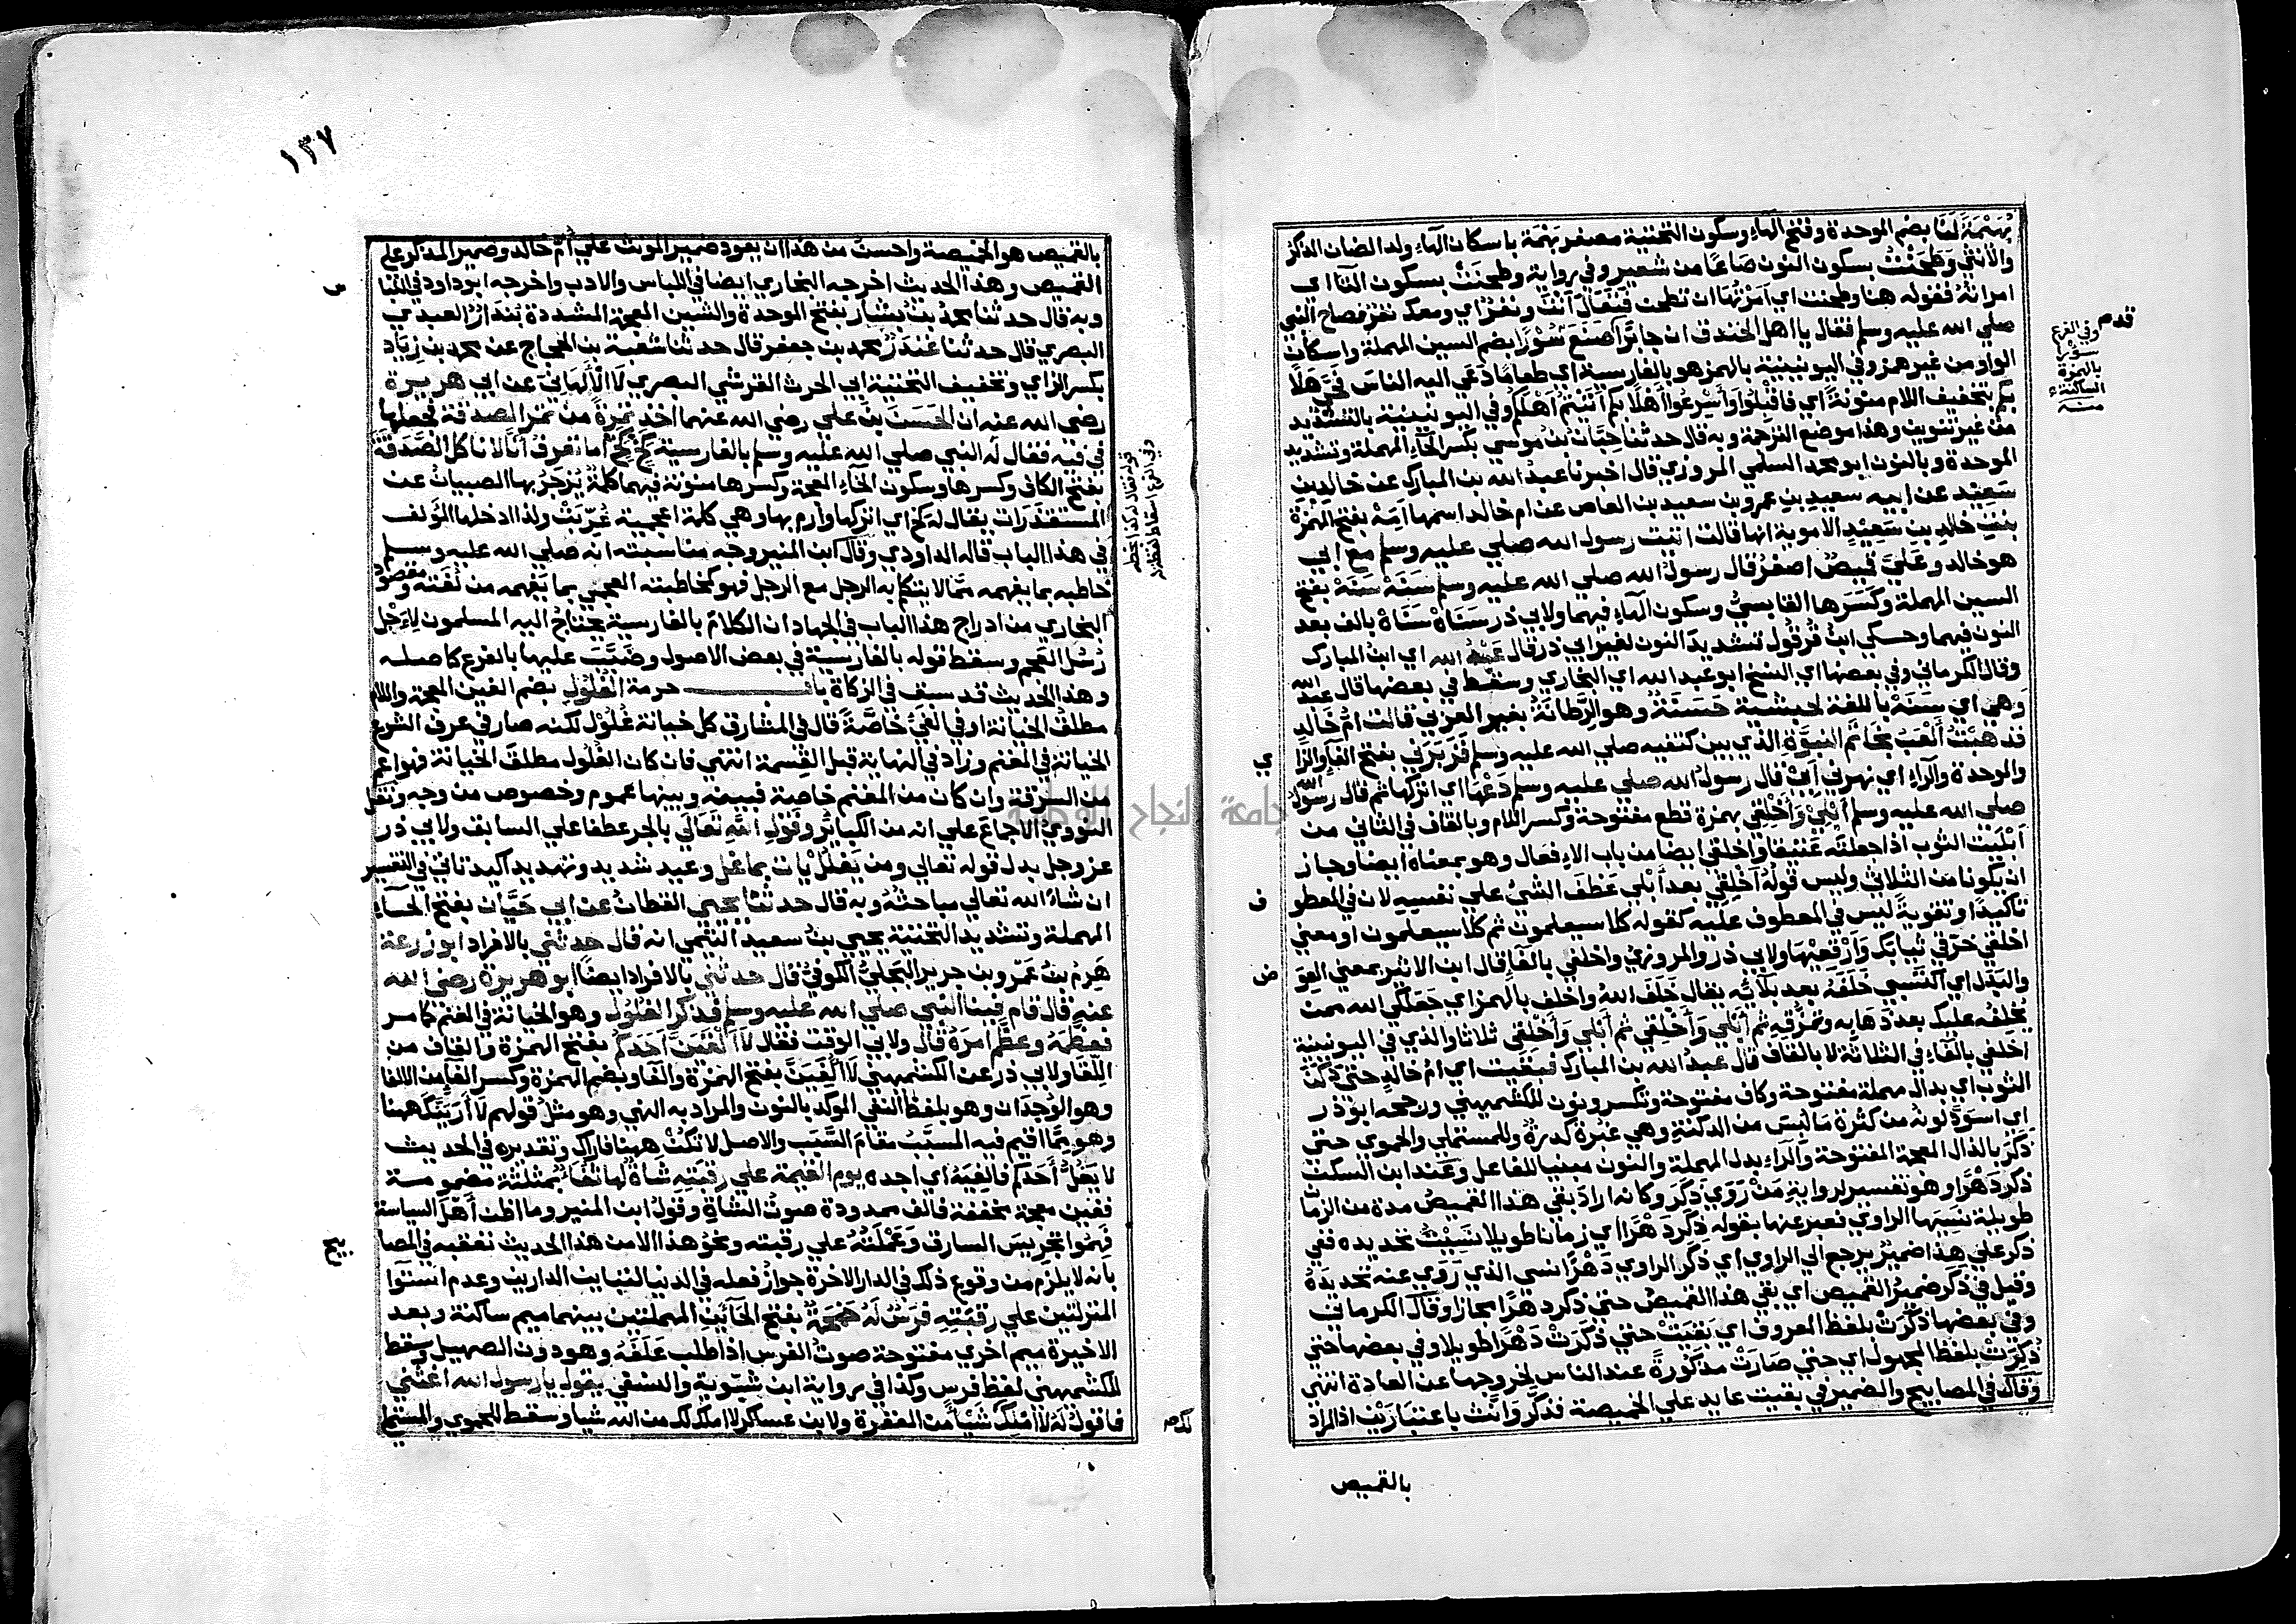 بُهَيْمَةً لنا بضم الموحدة وفتح الهاء وسكون التحتية مصغر بهمة باسكان الهاء ولد الضان الذكر
والانثي وطحنْتُ بسكون النون صاعًا من شعير وفي رواية وطحنَتْ بسكون التا اي
امراته فقوله هنا وطحنت اي امرتها ان تطحن فتعال انت ونفر اي ومعك نفر فصاح النبي
صلي الله عليه وسلم فقال يا اهل الخندق ان جابرًا صنع سُوْرًا بضم السين المهملة واسكان
الواو من غير همز وفي اليونينية بالهمز هو بالفارسية اي طعاما دعي اليه الناس فحيَّ هلًا
بكم بتخفيف اللام منونة اي فاقبلوا واسرعوا أهلا بكم اتيتم اهلكم وفي اليونينية بالتشديد
من غير تنوين وهذا موضع الترجمة وبه قال حدثنا حِبّان بن موسي بكسر الحاء المهملة وتشديد
الموحدة وبالنون ابو محمد السلمي المروزي قال اخبرنا عبد الله بن المبارك عن خالد بن
سَعيد عن ابيه سعيد بن عمرو بن سعيد بن العاص عن ام خالد اسمها امة بفتح الهمزة
بنت خالد بن سعيد الاموية انها قالت اتيت رسول الله صلي عليه وسلم مع ابي
هو خالد وعليَّ قميص اصفر قال رسول الله صلي الله عليه وسلم سَنَهْ سَنَهْ بفتح
السين المهملة وكسرها القابسي وسكون الهاء فيهما ولابي ذر سَنَاهْ سَنَاهْ بالف بعد
النون فيهما وحكي ابن قرقول تشديد النون لغير ابي ذر قال عبد الله اي ابن المبارك
وقال الكرماني وفي بعضها اي النسخ ابو عبد الله اي البخاري وسقط في بعضها قال عبد الله
وهي اي سنه باللغة الحبشية حسنة وهو الرطانة بغير العربي قالت ام خالد
فذهبت ألعب بخاتم النبوة الذي بين كتفيه صلي الله عليه وسلم فزبرني بفتح الفاء والزاي
والموحدة والراء اي نهرني ابي قال رسول الله صلي عليه وسلم دعها اي اتركها ثم قال رسول الله
صلي الله عليه وسلم أبلي وأخلقي بهمزة قطع مفتوحة وكسر اللام وبالقاف في الثاني من
أبليت الثوب اذا جعلته عتيقا وأخلقي ايضا من باب الافعال وهو بمعناه ايضا وجاز
ان يكونا من الثلاثي وليس قوله أخلقي بعد أبلي عطف الشيْ علي نفسه لان في المعطوف
تاكيدًا وتقوية ليس في المعطوف عليه كقوله كلا سيعلمون ثم كلا سيعلمون او معني
اخلقي خرقي ثيابك وارقعيها ولابي ذر والمروزي واخلفي بالفاء قال ابن الاثير بمعني العوض
والبدل اي اكتسبي خلفه بعد بلائه يقال خلف الله واخلف بالهمز اي جعلكي الله ممن
يخلفه عليك بعد ذهابه وتمزقه ثم أبلي وأخلقي ثم أبلي وأخلقي ثلاثا والذي في اليونينية
اخلفي بالفاء في الثلاثة لا بالقاف قال عبد الله بن المبارك فبقيت اي ام خالد حتى دكن
الثوب اي بدال مهملة مفتوحة وكاف مفتوحة وتكسر ونون للكشميهني ورجحه ابو ذر
اي اسودَّ لونه من كثرة ما لبس من الدكنة وهي غبرة كدرة وللمستملي والحموي حتي
ذكر بالذال المعجمة المفتوحة والراء بدل المهملة والنون مبنيا للفاعل وعند ابن السكن
ذكر دهرًا وهو تفسير لرواية من روي ذكر وكانه اراد بقي هذا القميص مدة من الزمان
طويلة نسيها الراوي فعبر عنها بقوله ذكر دهرًا اي زمانا طويلا نسيت تحديده ففي
ذكر علي هذا ضمير يرجع الي الراوي اي ذكر الراوي دهرًا نسي الذي روي عنه تحديدَهُ
وقيل في ذكر ضمير القميص اي بقي هذا القميص حتي ذكر دهرا مجازا وقال الكرماني
وفي بعضها ذكَرَتْ بلفظ المعروف اي بقيت حتي ذَكَرَتْ دهرًا طويلا وفي بعضها حتي
ذُكِرَتْ بلفظ المجهول اي حتي صارت مذكورة عند الناس لخروجها عن العادة انتهي
وقال في المصابيح والضمير في بقيت عايد علي الخميصة فذكّر وانّث باعتبارين اذ المراد
بالقميص
قدم
وفي الفرع
سؤرا
بالهمزة
الساكنة
منه
١٣٧
بالقميص هو الخميصة واحسن من هذا ان يعود ضمير المونث علي ام خالد وضمير المذكر علي
القميص وهذا الحديث اخرجه البخاري ايضا في اللباس والادب واخرجه ابو داود في اللباس
وبه قال حدثنا محمد بن بشار بفتح الموحدة والشين المعجمة المشددة بُندار العبدي
البصري قال حدثنا غندر محمد بن جعفر قال حدثنا شعبة بن الحجاج عن محمد بن زياد
بكسر الزاي وتخفيف التحتية ابي الحرث القرشي البصري لا الألهاني عن ابي هريرة
رضي الله عنه ان الحسن بن علي رضي الله عنهما اخذ تمرة من تمر الصدقة فجعلها
في فيه فقال له النبي صلي الله عليه وسلم بالفارسية كخ كخ اما تعرف انا لا ناكل الصدقة
بفتح الكاف وكسرها وسكون الخاء المعجمة وكسرها منونة فيهما كلمة يزجر بها الصبيان عن
المستقذرات يقال له كخ اي اتركها وارم بها وهي كلمة اعجمية عُرّبت ولذا ادخلها المؤلف
في هذا الباب قاله الداودي وقال ابن المنير وجه مناسبته انه صلي الله عليه وسلم
خاطبه بما يفهمه مما لا يتكلم به الرجل مع الرجل فهو كمخاطبته العجمي بما يفهمه من لغته ومقصود
البخاري من ادراج هذا الباب في الجهاد ان الكلام بالفارسية يحتاج اليه المسلمون لاجل
رسل العجم وسقط قوله بالفارسية في بعض الاصول وضبب عليها بالفرع كاصله
وهذا الحديث قد سبق في الزكاة باب حرمة الغلول بضم الغين المعجمة واللام
مطلق الخيانة او في الفيْ خاصة قال في المشارق كل خيانة غلول لكنه صار في عرف الشرع
الخيانة في المغنم وزاد في النهاية قبل القسمة انتهي فان كان الغلول مطلق الخيانة فهو اعم
من السرقة وان كان من المغنم خاصة فبينه وبينها عموم وخصوص من وجه ونقل
النووي الاجماع علي انه من الكبائر وقول الله تعالي بالجر عطفا علي السابق ولابي ذر
عز وجل بدل قوله تعالي ومن يغلل يات بما غل وعيد شديد وتهديد اكيد تاتي في التفسير
ان شاء الله تعالي مباحثه وبه قال حدثنا يحيي القطان عن ابي حيّان بفتح الحاء
المهملة وتشديد التحتية يحيي بن سعيد التيمي انه قال حدثني بالافراد ابو زرعة
هرم بن عمرو بن جرير البجلي الكوفي قال حدثني بالافراد ايضا ابو هريرة رضي الله
عنه قال قام فينا النبي صلي الله عليه وسلم فذكر الغلول وهو الخيانة في المغنم كما مر
فعظمه وعظّم امره قال ولابي الوقت فقال لا الفين احدكم بفتح الهمزة والقاف من
اللقا ولابي ذر عن الكشميهني لا الفين بفتح الهمزة والفاء وبضم الهمزة وكسر الفاء من الالفا
وهو الوجدان وهو بلفظ النفي الموكد بالنون والمراد به النهي وهو مثل قولهم لا أرينك ههنا
وهو مما اقيم فيه المسبب مقام السبب والاصل لا تكن ههنا فاراك وتقديره في الحديث
لا يغل أحدكم فالفيه اي اجده يوم القيمة علي رقبته شاة لها ثغاء بمثلثة مضمومة
فغين معجمة مخففة فالف ممدودة صوت الشاة وقول ابن المنير وما اظن أهل السياسة
فهموا تجريس السارق وعملته علي رقبته ونحو هذا الا من هذا الحديث تعقبه في المصابيح
بانه لا يلزم من وقوع ذلك في الدار الاخرة جواز فعله في الدنيا لتباين الدارين وعدم استوا
المنزلتين علي رقبته فرس له حمحمة بفتح الحاءين المهملتين بينهما ميم ساكنة وبعد
الاخيرة ميم اخري مفتوحة صوت الفرس اذا طلب علفه وهو دون الصهيل وسقط
للكشميهني لفظ فرس وكذا في رواية ابن شبوية والنسفي يقول يا رسول الله اغثني
فاقول له لا املك شيْا من المغفرة ولابن عساكر لا املك لك من الله شيا وسقط للحموي والمستملي
لك م
جامعة النجاح الوطنية